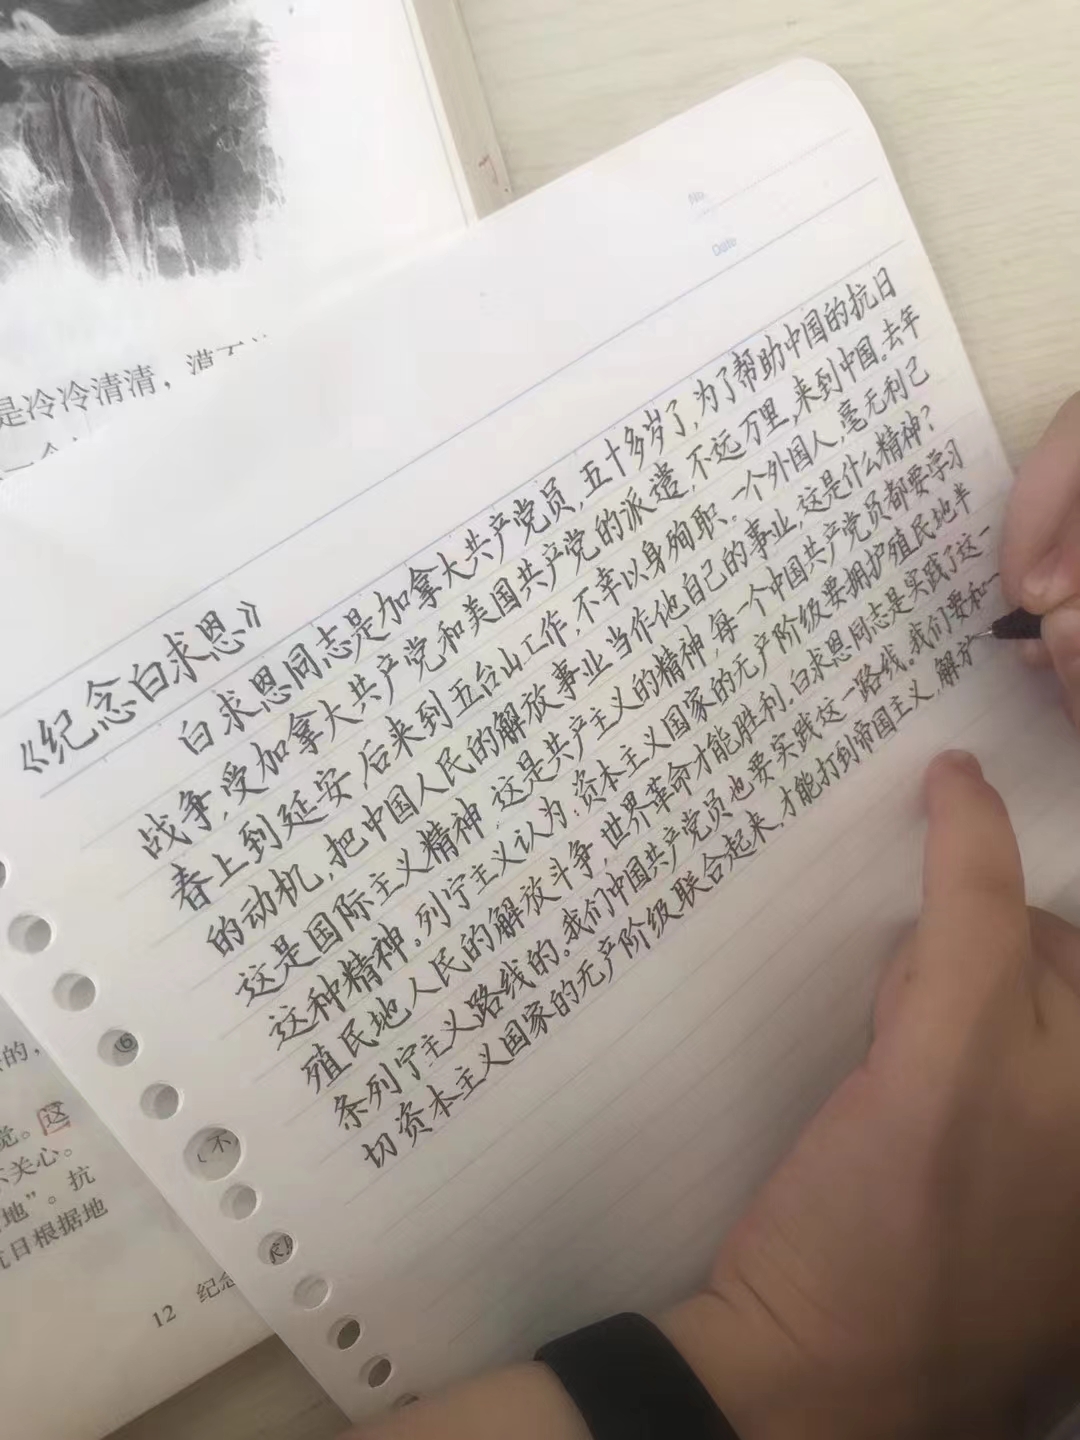 No.
Date
是冷冷清清，
《纪念白求恩》
白求恩同志是加拿大共产党员,五十多岁了,为了帮助中国的抗日
战争,受加拿大共产党和美国共产党的派遣,不远万里,来到中国。去年
春上到延安,后来到五台山工作,不幸以身殉职。一个外国人,毫无利己
的动机,把中国人民的解放事业当作他自己的事业,这是什么精神?
这是国际主义精神,这是共产主义的精神,每一个中国共产党员都要学习
这种精神。列宁主义认为:资本主义国家的无产阶级要拥护殖民地半
殖民地人民的解放斗争,世界革命才能胜利。白求恩同志是实践了这一
条列宁主义路线的。我们中国共产党员也要实践这一路线。我们要和一
切资本主义国家的无产阶级联合起来,才能打到帝国主义,解方
的，
觉。这
不关心。
地”。抗
抗日根据地
12 纪念